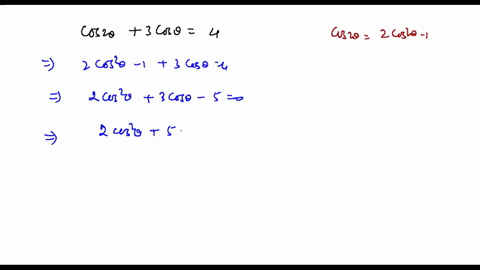 cos2θ + 3 cosθ = 4
cos2θ = 2cos²θ-1
⇒) 2 cos²θ -1 + 3 cosθ = 4
⇒) 2 cos²θ + 3 cosθ - 5 = 0
⇒) 2 cos²θ + 5